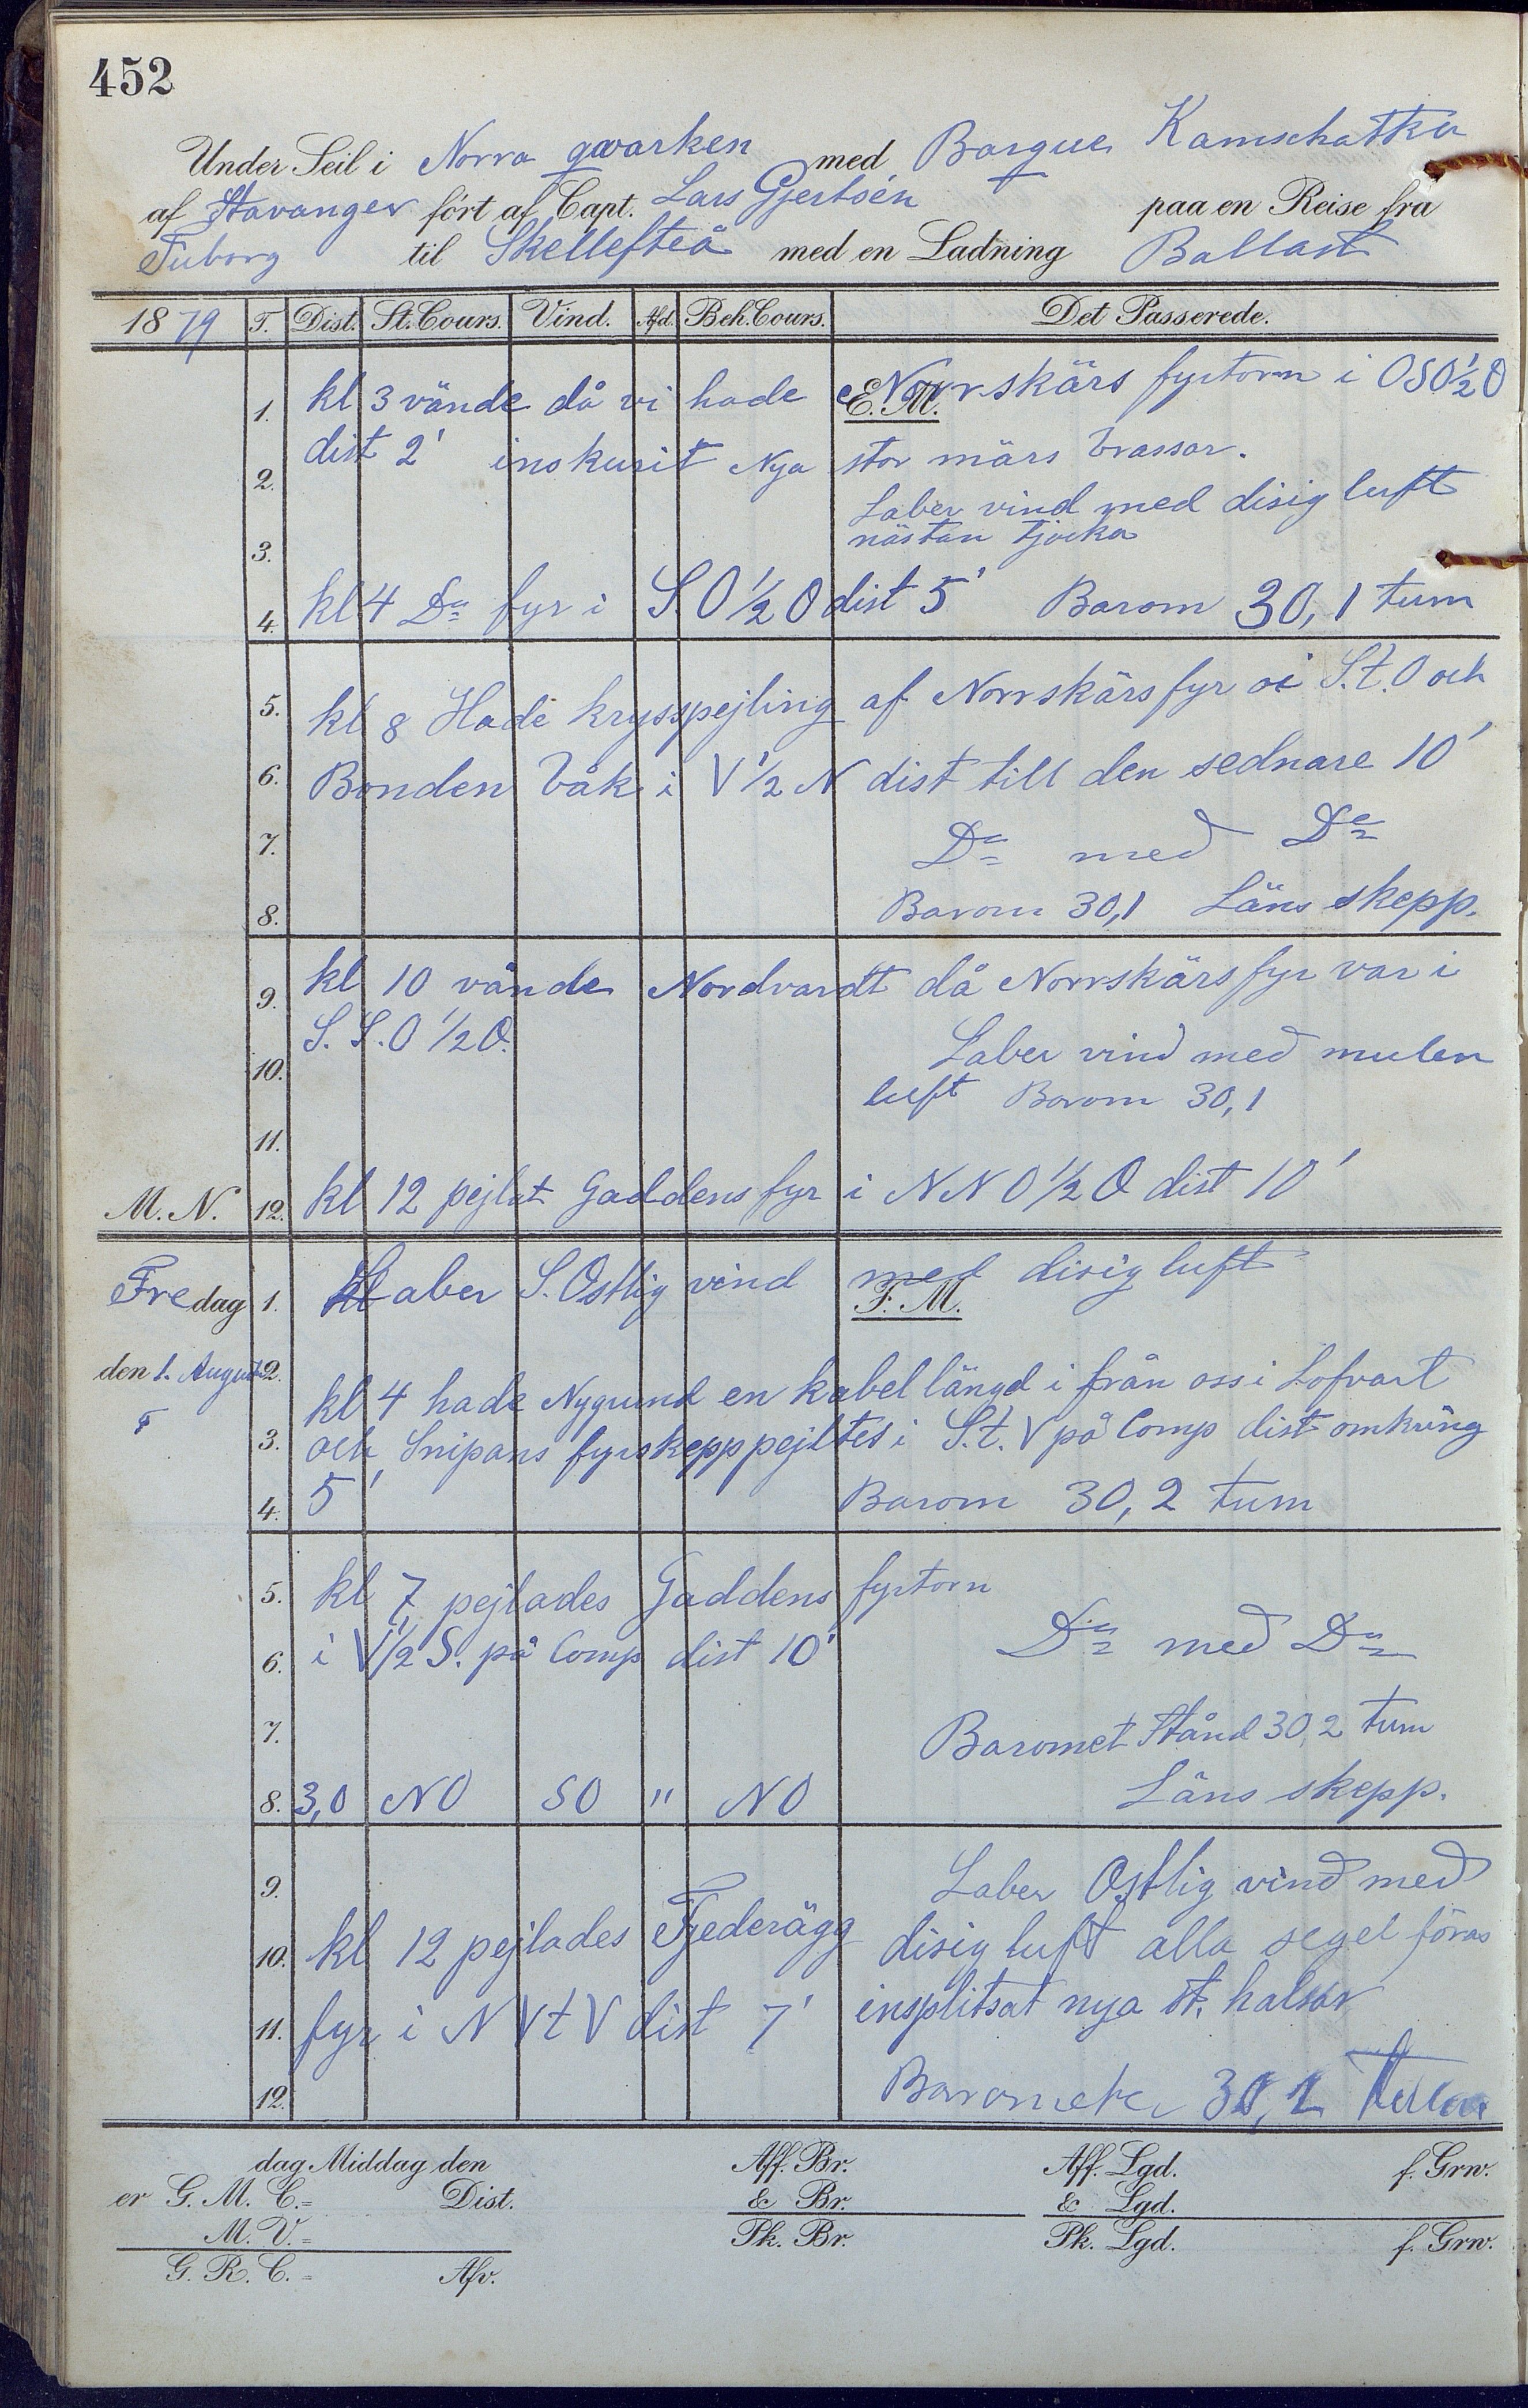 452
Under Seil i Norra qvarken med Barque Kamschatka
af Stavanger fört af Capt. Lars Gjertsén paa en Reise fra
Tuborg til Skellefteå med en Ladning Ballast
1879 T. Dist. St. Cours. Vind. Afd. Beh. Cours. Det Passerede.
E. M.
1. kl 3 vände då vi hade Norrskärs fyrtorn i OSO 1/2 O
2. dist 2' inskurit Nya stor märs brassar.
Laber vind med disig luft
3. nästan tjocka
4. kl 4 Do fyr i S.O 1/2 O dist 5' Barom 30,1 tum
5. kl 8 Hade krysspejling af Norrskärs fyr i S.t.O och
6. Bonden båk i V 1/2 N dist till den sednare 10'
7. Do med Do
8. Barom 30,1 Läns skepp.
9. kl 10 vände Nordvardt då Norrskärs fyr var i
S.S.O 1/2 O.
10. Laber vind med mulen
luft Barom 30,1
11.
M. N. 12. kl 12 pejlat Gaddens fyr i NNO 1/2 O dist 10'
Fredag 1. Laber S.Ostlig vind med disig luft
F. M.
den 1. August 2.
kl 4 hade Nygrund en kabellängd i från oss i Lofvart
3. och Snipans fyrskepp pejltes i S.t.V på Comp dist omkring
4. 5' Barom 30,2 tum
5. kl 7 pejlades Gaddens fyrtorn
6. i V 1/2 S. på Comp dist 10' Do med Do
7. Baromet Stånd 30,2 tum
8. 3,0 NO SO " NO Läns skepp.
9. Laber Ostlig vind med
10. kl 12 pejlades Fjederägg disig luft alla segel föras
11. fyr i NVtV dist 7' insplitsat nya st. halsar
12. Barometer tum
dag Middag den Aff. Br. Aff. Lgd. f. Grw.
er G. M. C. = Dist. & Br. & Lgd.
M. V. = Pk. Br. Pk. Lgd. f. Grw.
G. R. C. = Afv.